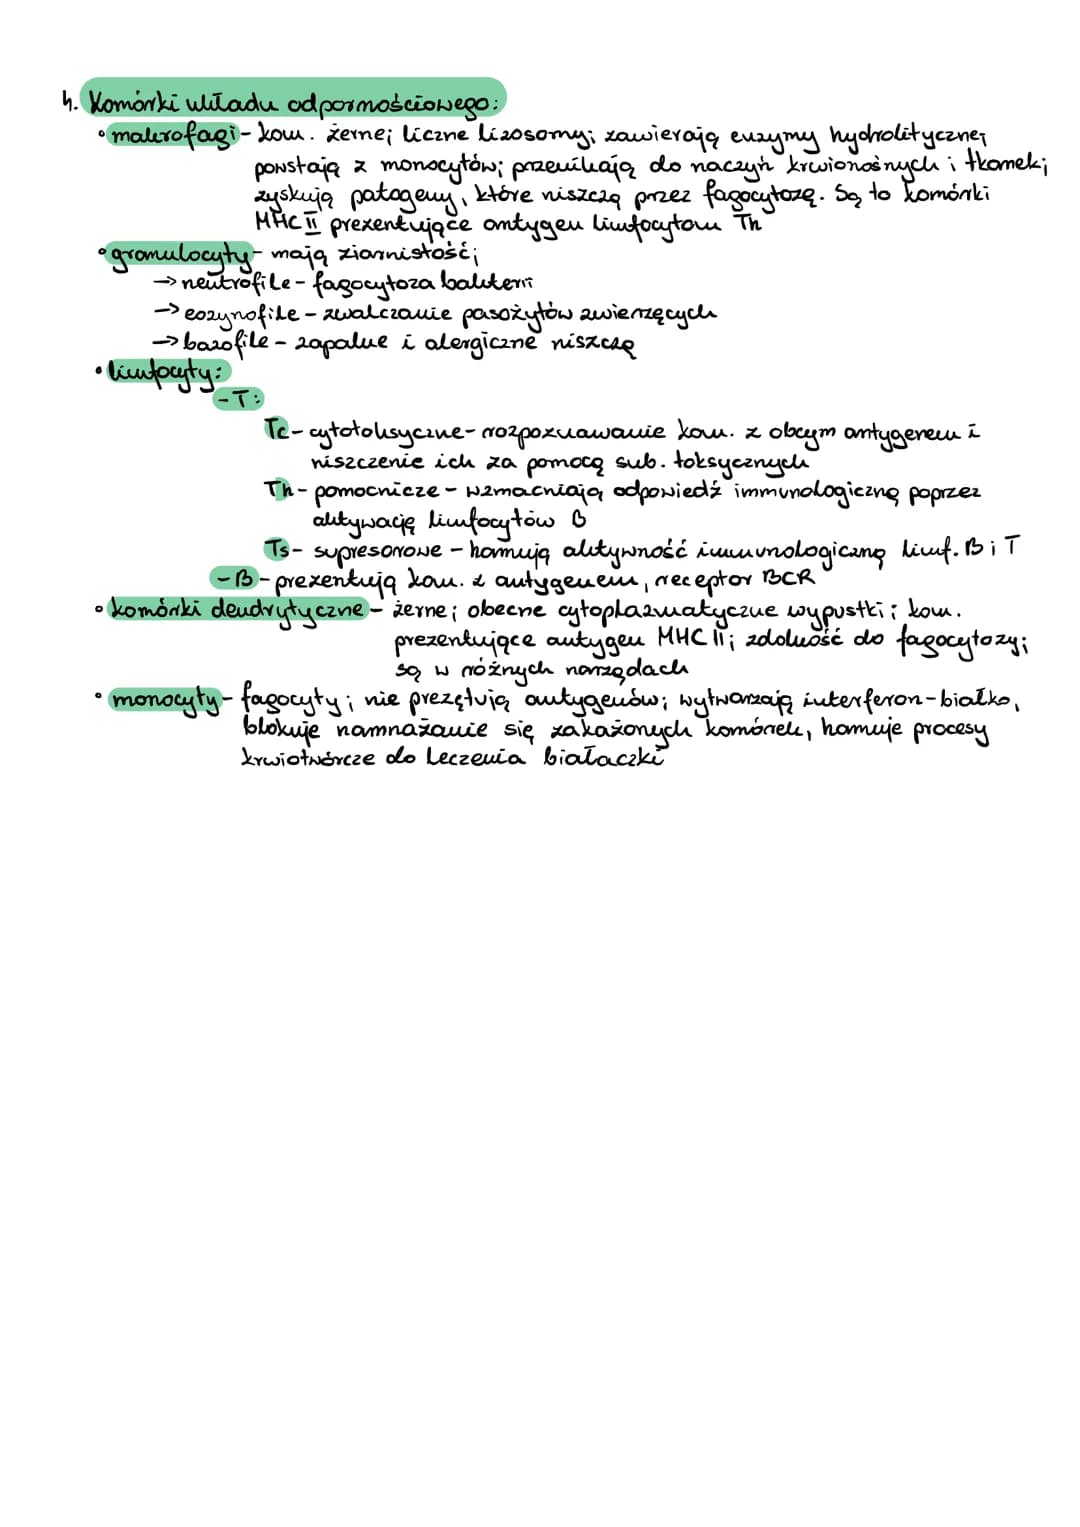 4. Komórki układu odpornościowego:
• makrofagi - kom. żerne; liczne lizosomy; zawierają enzymy hydrolityczne;
powstają z monocytów; przenikają do naczyń krwionośnych i tkanek;
zyskują patogeny, które niszczą przez fagocytozę. Są to komórki
MHC II prezentujące antygen limfocytom Th
• granulocyty - mają ziarnistość;
→ neutrofile - fagocytoza bakterii
→ eozynofile - zwalczanie pasożytów zwierzęcych
→ bazofile - zapalne i alergiczne niszczą
• limfocyty:
- T:
Tc - cytotoksyczne - rozpoznawanie kom. z obcym antygenem i
niszczenie ich za pomocą sub. toksycznych
Th - pomocnicze - wzmacniają odpowiedź immunologiczną poprzez
aktywację limfocytów B
Ts - supresorowe - hamują aktywność immunologiczną limf. B i T
- B - prezentują kom. z antygenem, receptor BCR
• komórki dendrytyczne - żerne; obecne cytoplazmatyczne wypustki; kom.
prezentujące antygen MHC II; zdolność do fagocytozy;
są w różnych narządach
• monocyty - fagocyty; nie prezętują antygenów; wytwarzają interferon - białko,
blokuje namnażanie się zakażonych komórek, hamuje procesy
krwiotwórcze do leczenia białaczki